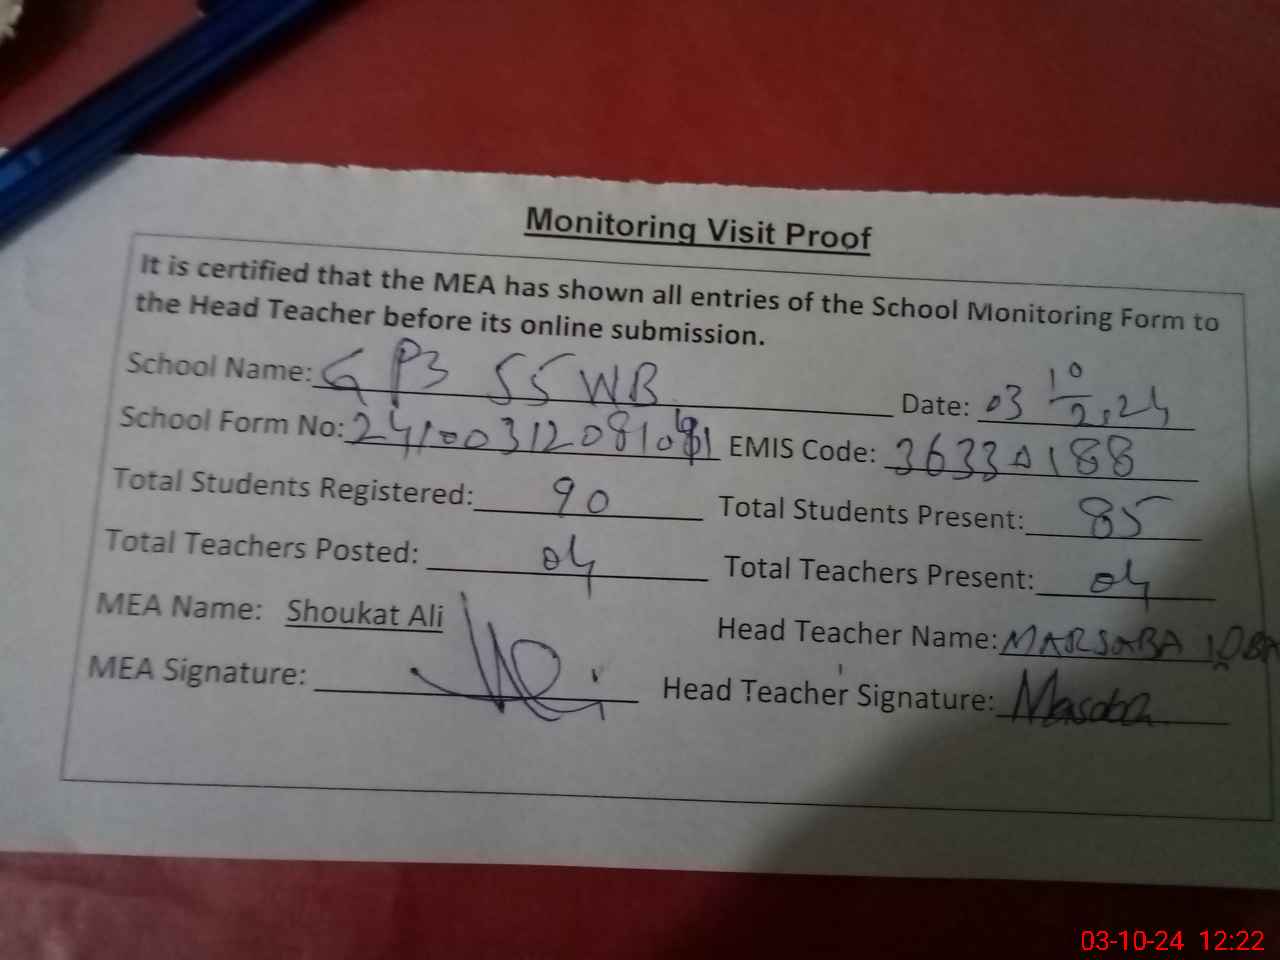 Monitoring Visit Proof
It is certified that the MEA has shown all entries of the School Monitoring Form to
the Head Teacher before its online submission.
School Name: GPS 55 WB Date: 03 10 24
School Form No: EMIS Code: 36330188
Total Students Registered: 90 Total Students Present: 85
Total Teachers Posted: 04 Total Teachers Present: 04
MEA Name: Shoukat Ali Head Teacher Name:
MEA Signature: Head Teacher Signature:
03-10-24 12:22